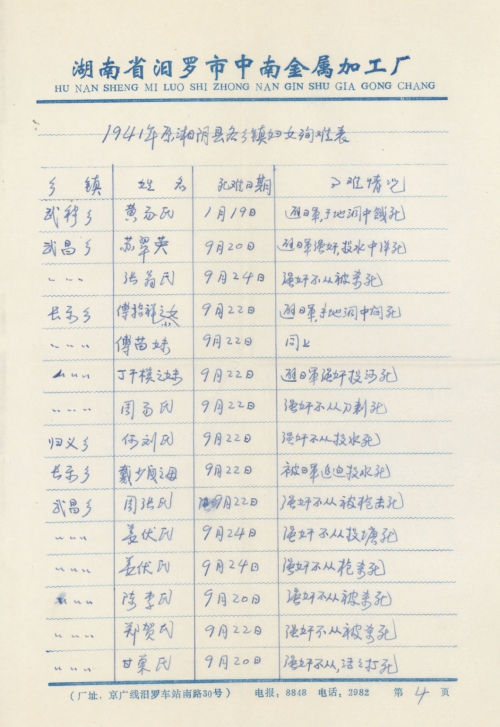 湖南省汨罗市中南金属加工厂
HU NAN SHENG MI LUO SHI ZHONG NAN GIN SHU GIA GONG CHANG
1941年原湘阴县各乡镇妇女殉难表
乡 镇 姓 名 死难日期 死难情况
武穆乡 黄易氏 1月19日 避日军,于地洞中饿死
武昌乡 苏翠英 9月20日 避日军强奸,投水中淹死
〃〃〃 张翁氏 9月24日 强奸不从被杀死
长乐乡 傅裕祥之女 9月22日 避日军,于地洞中闷死
〃〃〃 傅苗妹 9月22日 同上
〃〃〃 丁干模之妹 9月22日 避日军强奸投河死
〃〃〃 周易氏 9月22日 强奸不从刀刺死
归义乡 何刘氏 9月22日 强奸不从投水死
长乐乡 戴少成之母 9月22日 被日军追迫投水死
武昌乡 周张氏 9月22日 强奸不从被枪击死
〃〃〃 姜伏氏 9月24日 强奸不从投塘死
〃〃〃 姜伏氏 9月24日 强奸不从枪杀死
〃〃〃 陈李氏 9月20日 强奸不从被杀死
〃〃〃 郑贺氏 9月22日 强奸不从被杀死
〃〃〃 甘栗氏 9月20日 强奸不从,活活打死
(厂址:京广线汨罗车站南路30号) 电报:8848 电话:2982 第4页